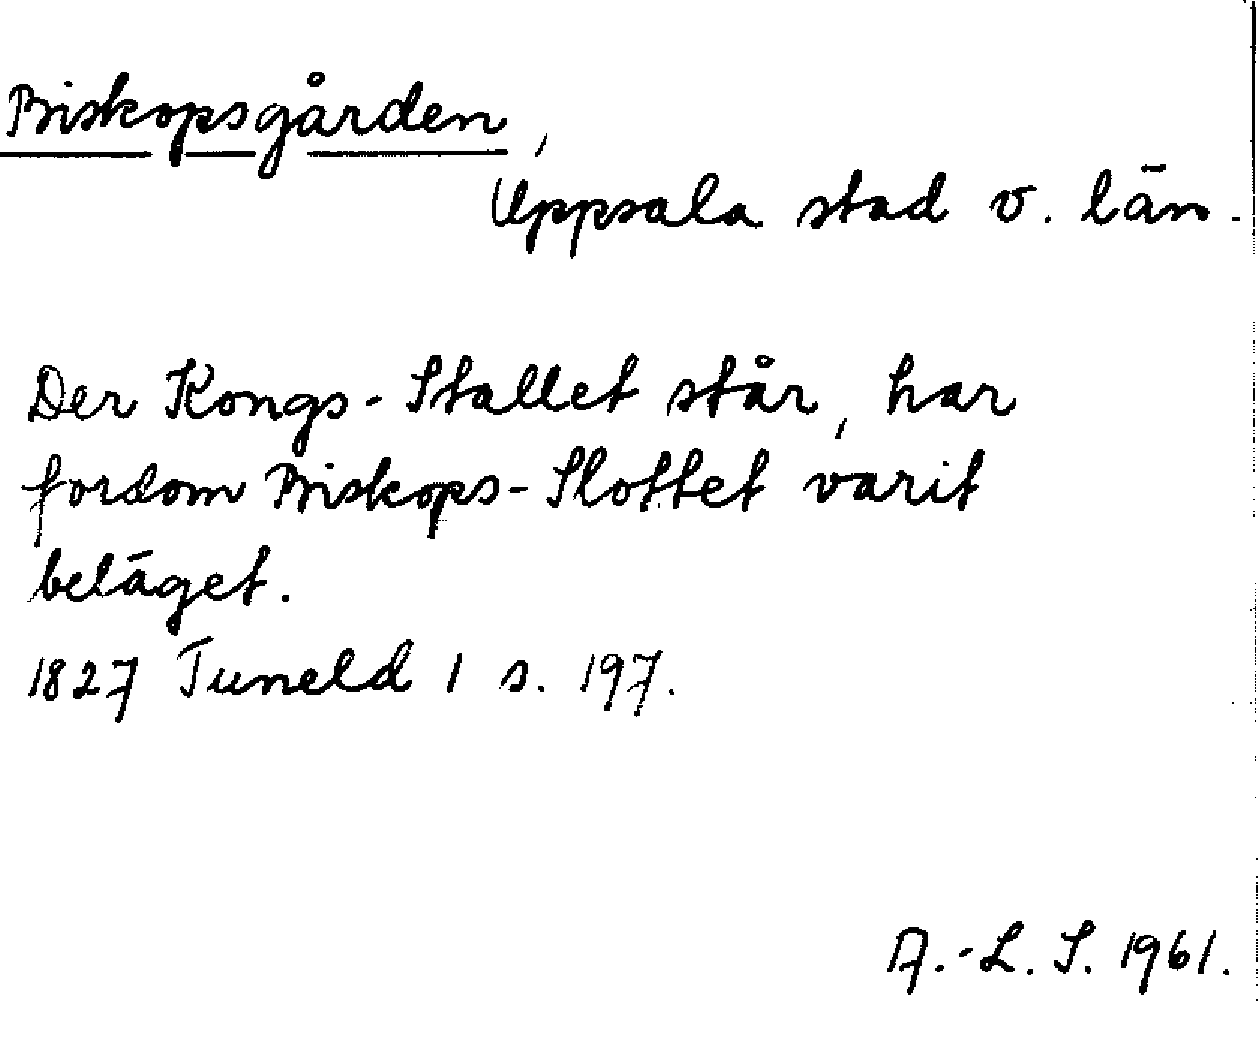 Biskopsgården,
Uppsala stad o. län.
Der Kongs-Stallet står, har
fordom Biskops-Slottet varit
beläget.
1827 Tuneld 1 s. 197.
A.-L. S. 1961.